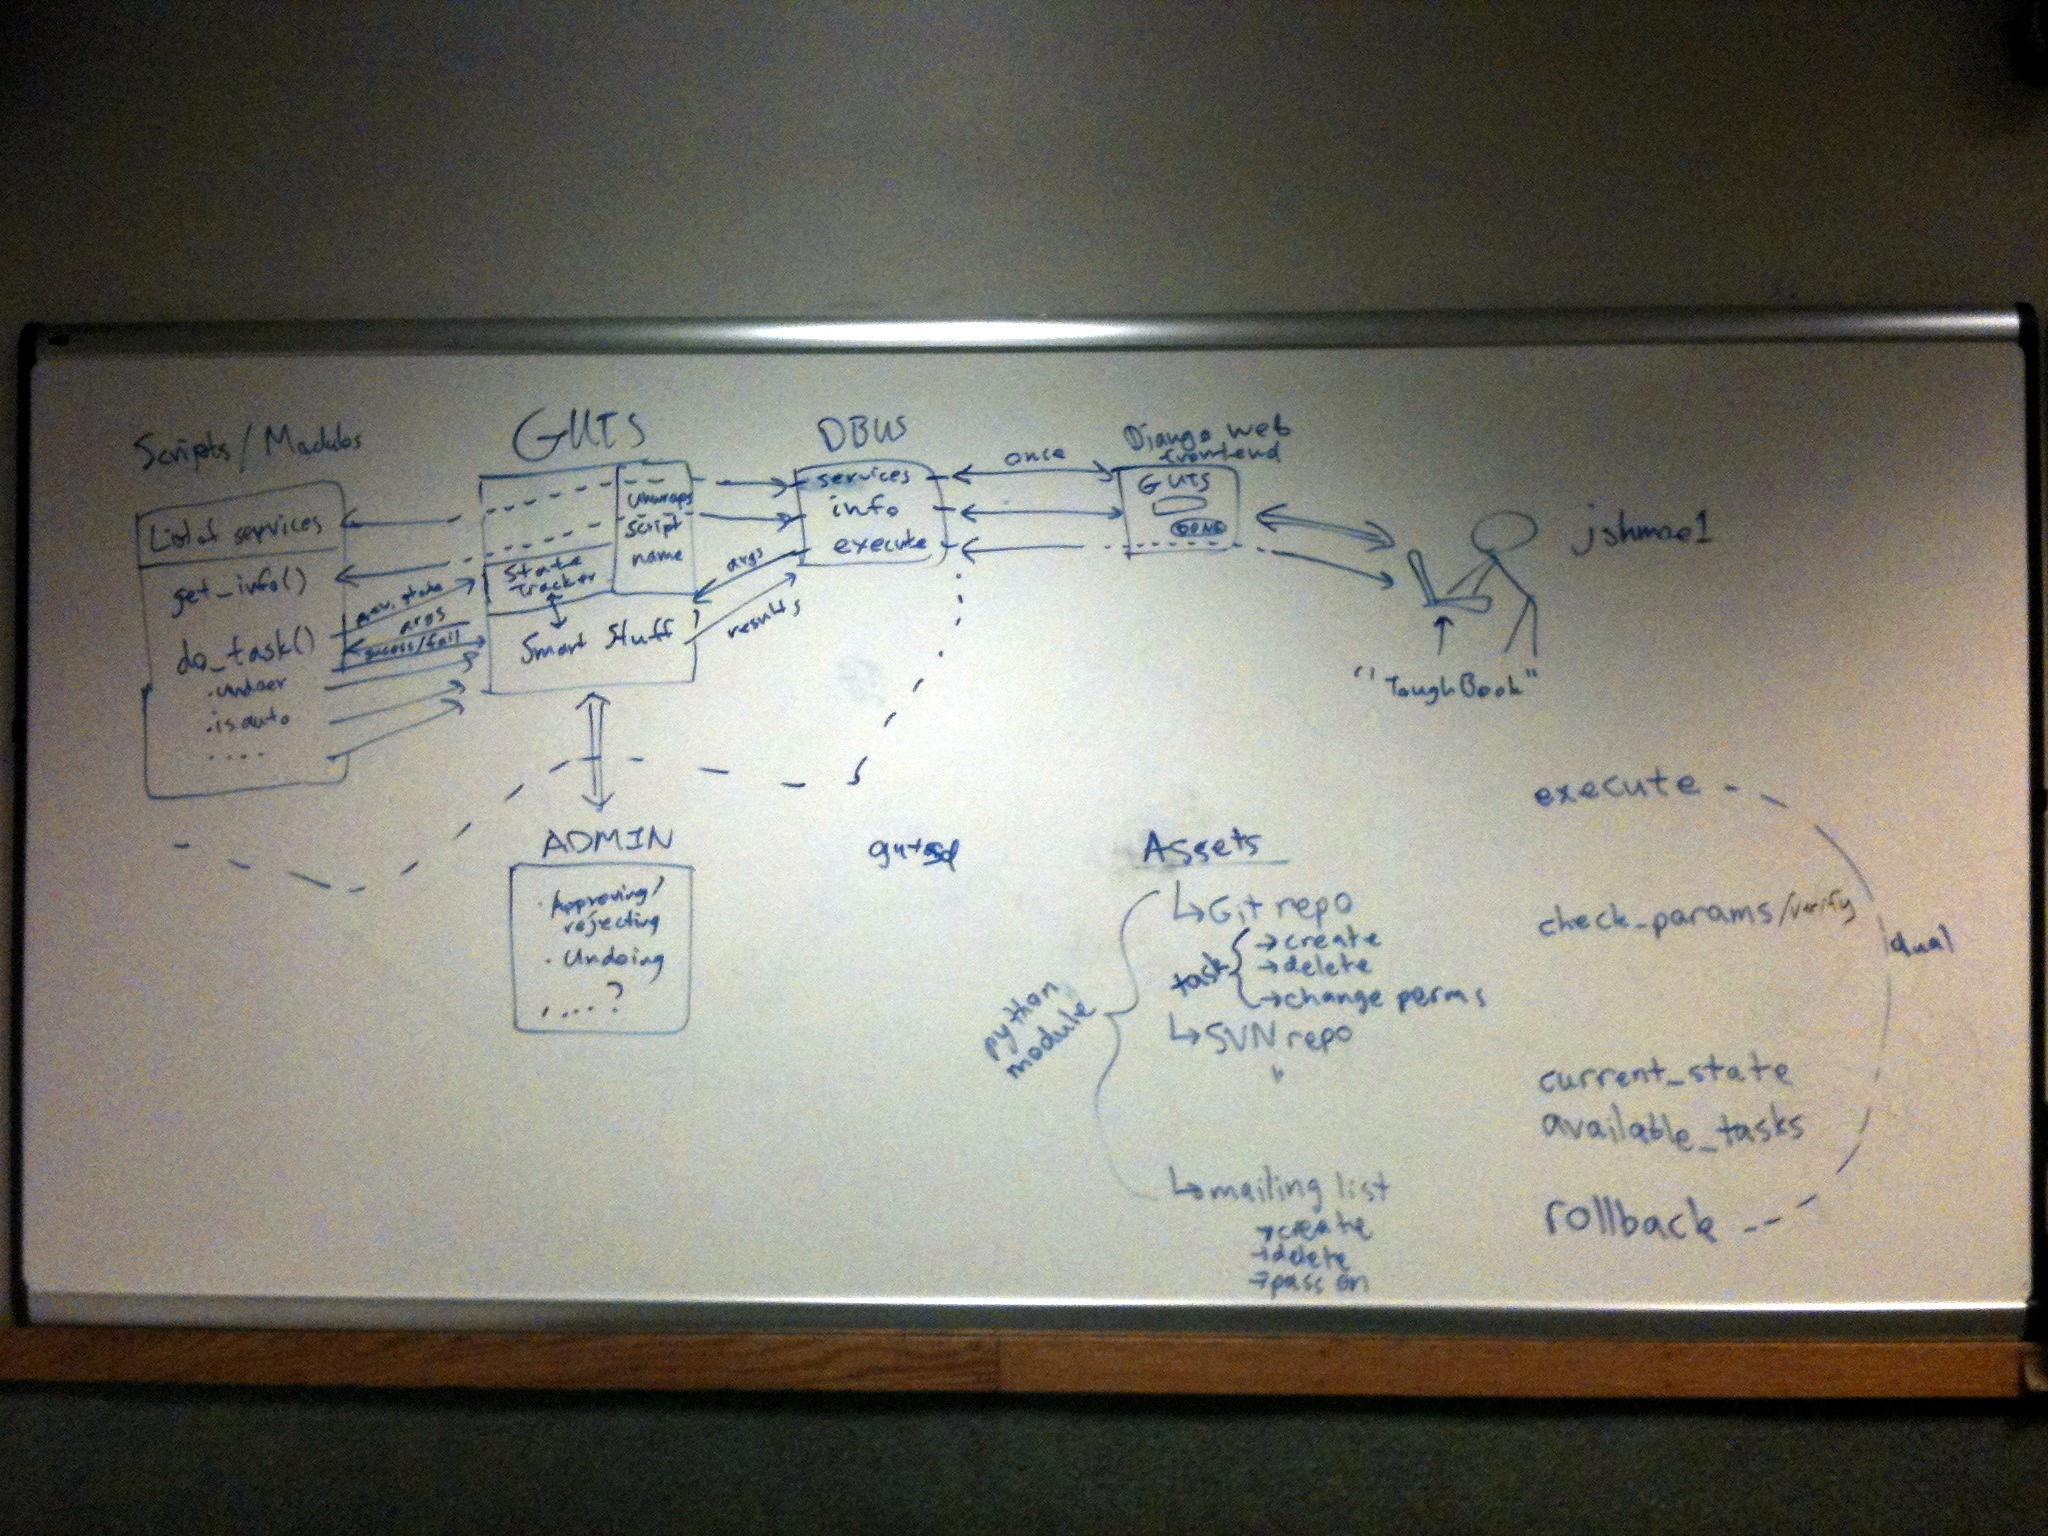 Scripts/Modules
List of services
get_info()
do_task()
.undoer
.isauto
....
prev. state
args
success/fail
GUTS
Unwraps
script
name
State
Tracker
Smart Stuff
args
results
DBUS
services
info
execute
once
Django web
frontend
GUTS
jshmoe1
"ToughBook"
ADMIN
. Approving/
rejecting
. Undoing
....?
gutsd
python
module
Assets
↳Git repo
task
→create
→delete
→change perms
↳SVN repo
"
↳mailing list
→create
→delete
→pass on
execute
check_params/verify
dual
current_state
available_tasks
rollback